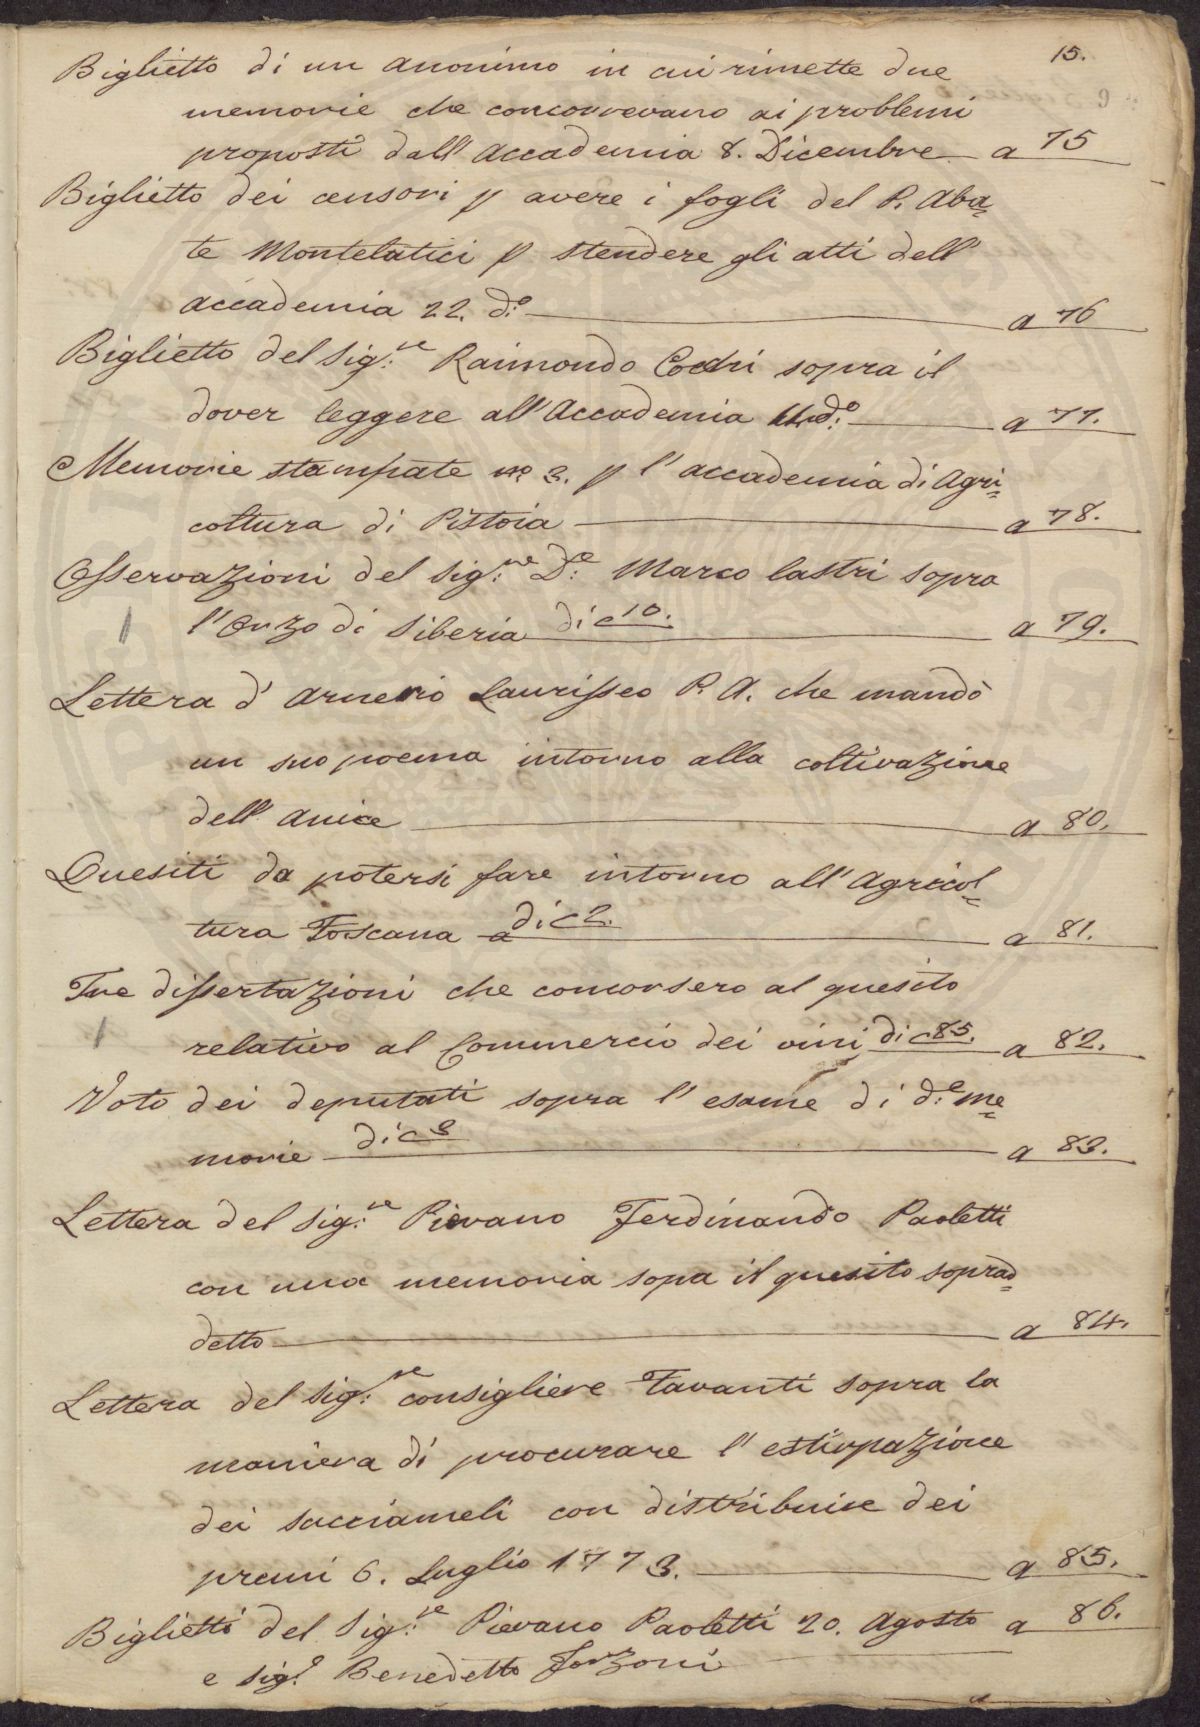 15.
Biglietto di un anonimo in cui rimette due
memorie che concorrevano ai problemi
proposti dall' accademia 8. Dicembre a 75
Biglietto dei censori p avere i fogli del P. Aba=
te Montelatici p stendere gli atti dell'
accademia 22. d:o a 76
Biglietto del Sig:re Raimondo Cocchi sopra il
dover leggere all' Accademia d:o a 77.
Memorie stampate no 3. p l' accademia di Agri=
coltura di Pistoia a 78.
Osservazioni del Sig:re D:e Marco Lastri sopra
l' Orzo di Siberia di c 10. a 79.
Lettera d' Arnerio Laurisseo P. A. che mandò
un suo poema intorno alla coltivazione
dell' anice a 80.
Quesiti da potersi fare intorno all' Agricol=
tura Toscana di c 2. a 81.
Tre dissertazioni che concorsero al quesito
relativo al Commercio dei vini di c 85. a 82.
Voto dei deputati sopra l' esame di d:e me=
morie di c 3 a 83.
Lettera del Sig:re Pievano Ferdinando Paoletti
con una memoria sopa il quesito soprad=
detto a 84.
Lettera del Sig:re consigliere Tavanti sopra la
maniera di procurare l' estirpazione
dei succiameli con distribuire dei
premi 6. Luglio 1773. a 85.
Biglietti del Sig:re Pievano Paoletti 20. Agosto a 86.
e Sig.e Benedetto Forzoni